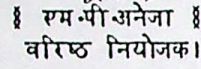 एम·पी·अनेजा
वरिष्ठ नियोजक।